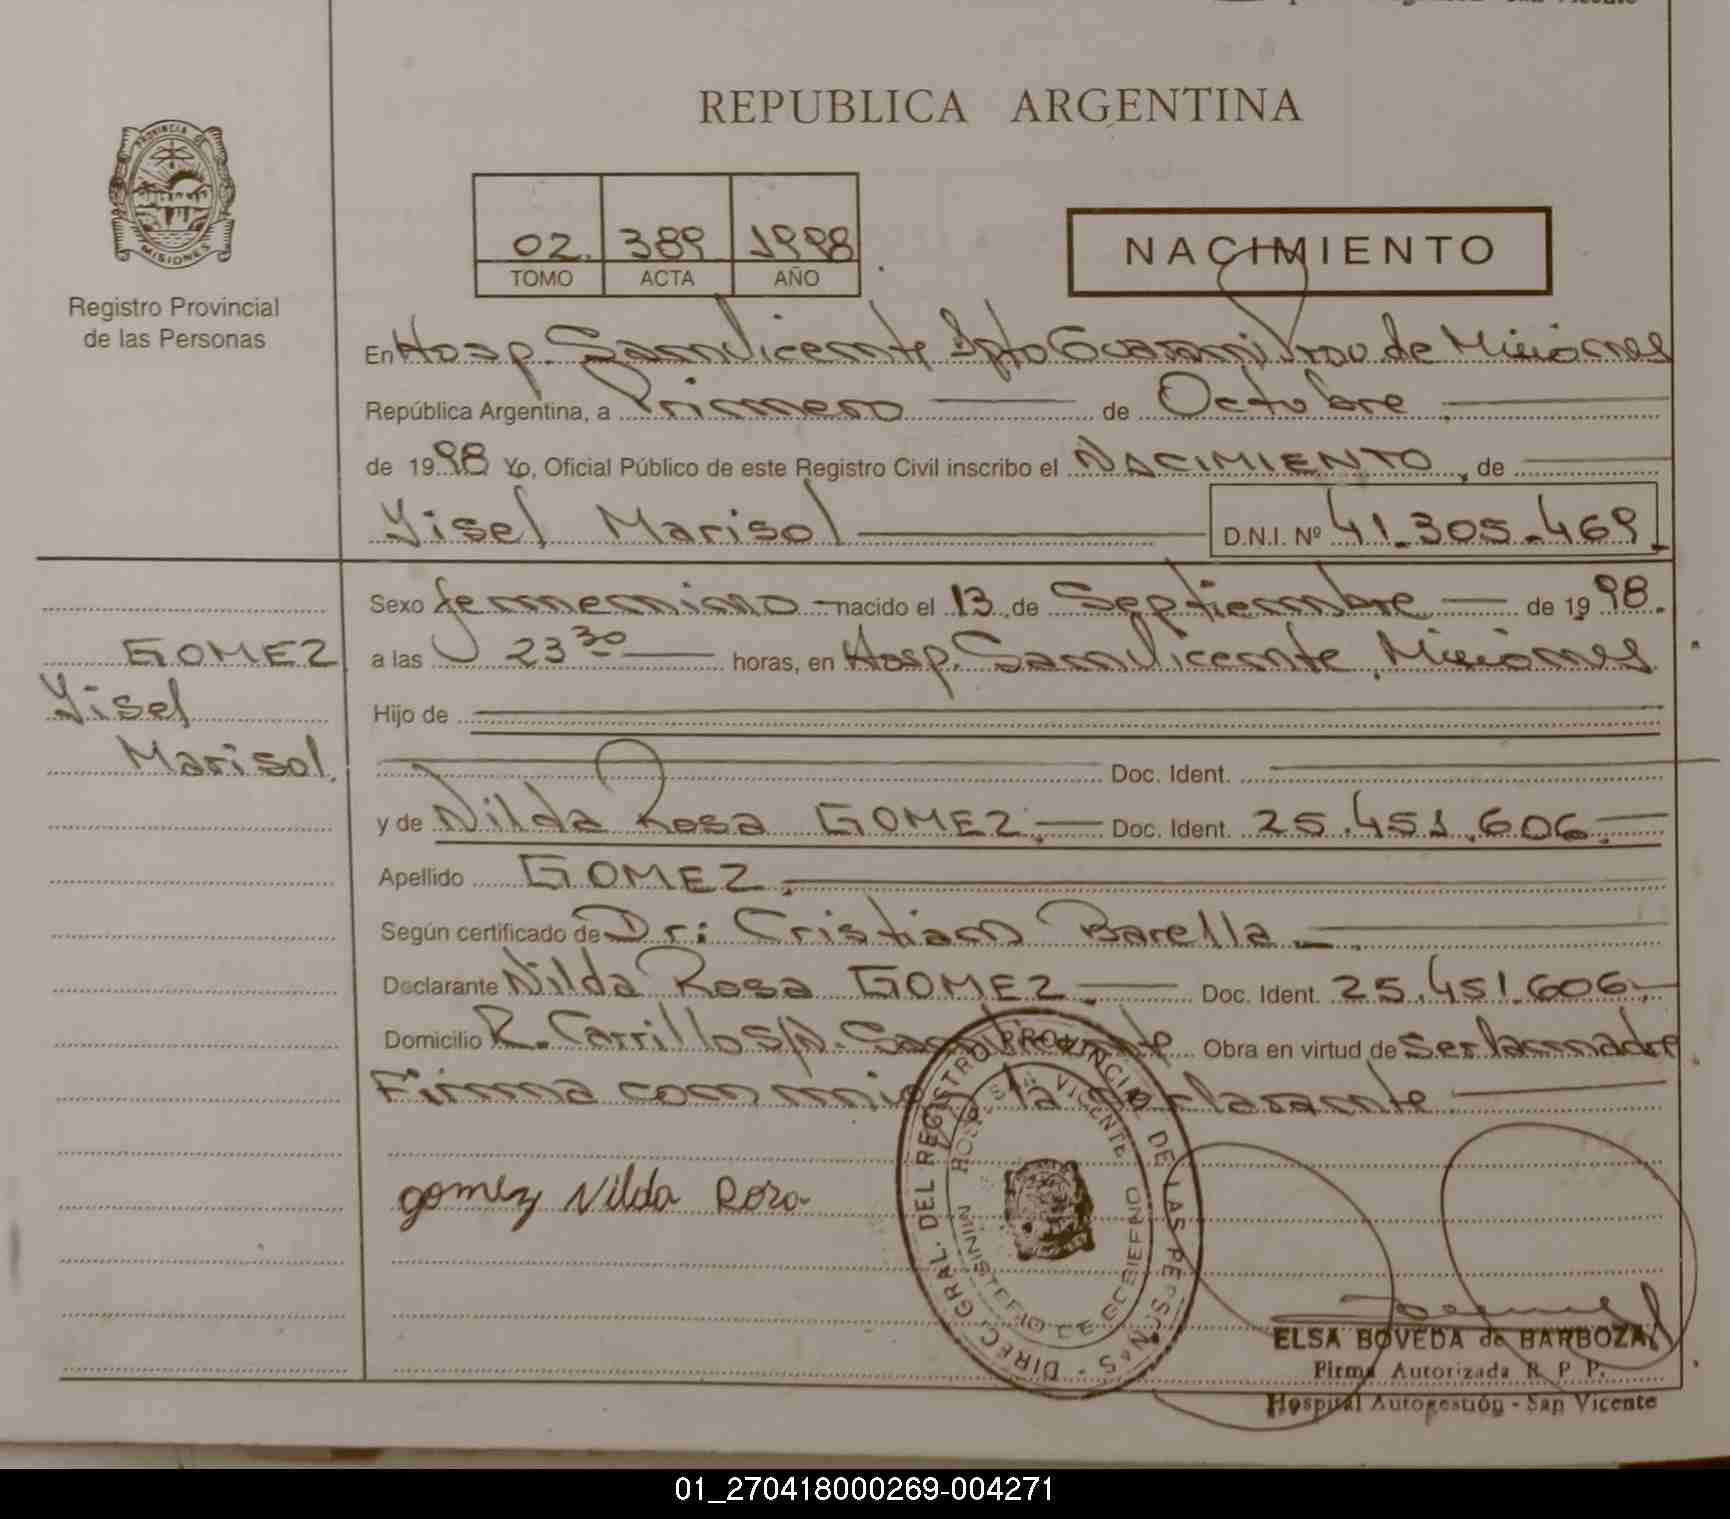 REPUBLICA ARGENTINA
PROVINCIA DE
MISIONES
Registro Provincial
de las Personas
02. 389 1998
TOMO ACTA AÑO
NACIMIENTO
En Hosp. San Vicente Dpto Guarani Prov de Misiones
República Argentina, a Primero de Octubre
de 1998 Yo, Oficial Público de este Registro Civil inscribo el NACIMIENTO, de
Yisel Marisol D.N.I. Nº 41.305.469
Sexo femenino nacido el 13 de Septiembre de 1998.
GOMEZ
Yisel
Marisol.
a las 23 30 horas, en Hosp. San Vicente, Misiones
Hijo de
Doc. Ident.
y de Nilda Rosa GOMEZ. Doc. Ident. 25.451.606.
Apellido GOMEZ.
Según certificado de Dr: Cristian Barella
Declarante Nilda Rosa GOMEZ. Doc. Ident. 25.451.606.
Domicilio R. Carrillo S/N. San Vicente Obra en virtud de ser la madre
Firma con migo la declarante
gomez Nilda Rosa
DIREC. GRAL. DEL REGISTRO PROVINCIAL DE LAS PERSONAS
HOSP. SAN VICENTE
MINISTERIO DE GOBIERNO
ELSA BOVEDA de BARBOZA
Firma Autorizada R. P. P.
Hospital Autogestión - San Vicente
01_270418000269-004271